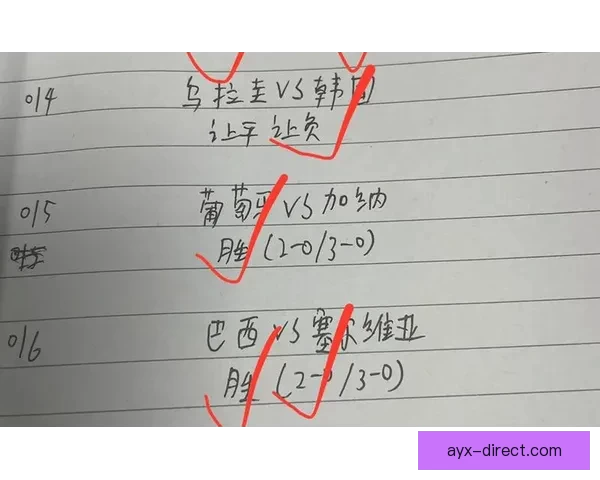 014 乌拉圭VS韩国
让平 让负
015 葡萄牙VS加纳
胜(2-0/3-0)
016 巴西VS塞尔维亚
胜(2-0/3-0)
ayx-direct.com